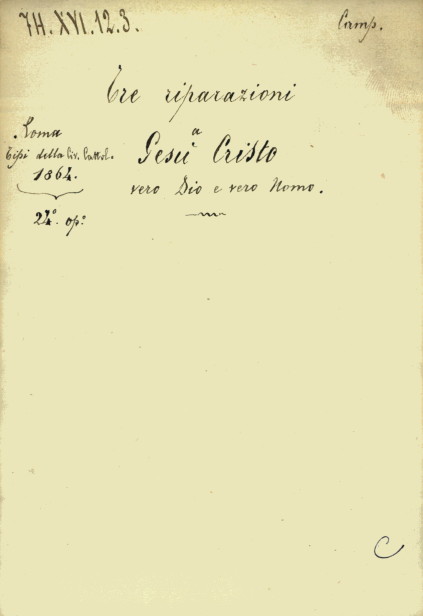 7H.XVI.12.3.
Camp.
Tre riparazioni
a
Gesù Cristo
vero Dio e vero Uomo.
Roma
Tipi della Civ. Cattol.
1864.
24º. op.º
C